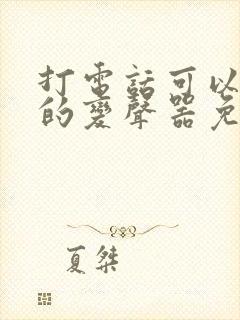 打電話可以
的變聲器免
夏桀